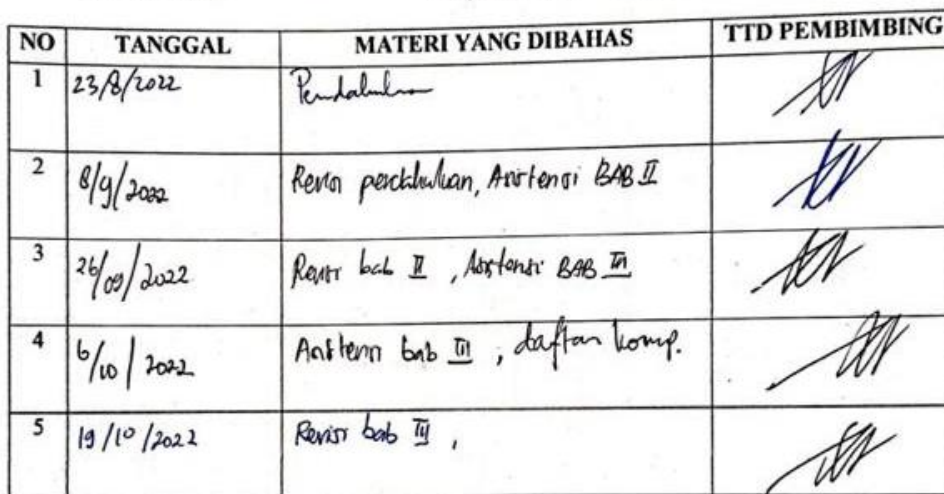 NO TANGGAL MATERI YANG DIBAHAS TTD PEMBIMBING
1 23/8/2022 Pendahuluan
2 8/9/2022 Revisi pendahuluan, Asistensi BAB II
3 26/09/2022 Revisi bab II, Asistensi BAB III
4 6/10/2022 Asistensi bab III, daftar komp.
5 19/10/2022 Revisi bab III,